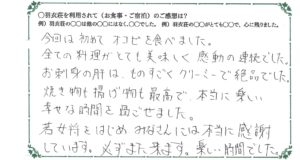 ○羽衣荘を利用されて（お食事・ご宿泊）のご感想は？
例）羽衣荘の○○は他の○○にはなく、○○でした。例）羽衣荘の○○がとても○○で、心に残りました。
今回は初めて オコゼを食べました。
全ての料理がとても美味しく 感動の連続でした。
お刺身の肝は、ものすごく クリーミーで絶品でした。
焼き物も揚げ物も最高で、本当に楽しい
幸せな時間を過ごせました。
若女将をはじめ みなさんには本当に感謝
しています。必ずまた来ます。楽しい時間でした。